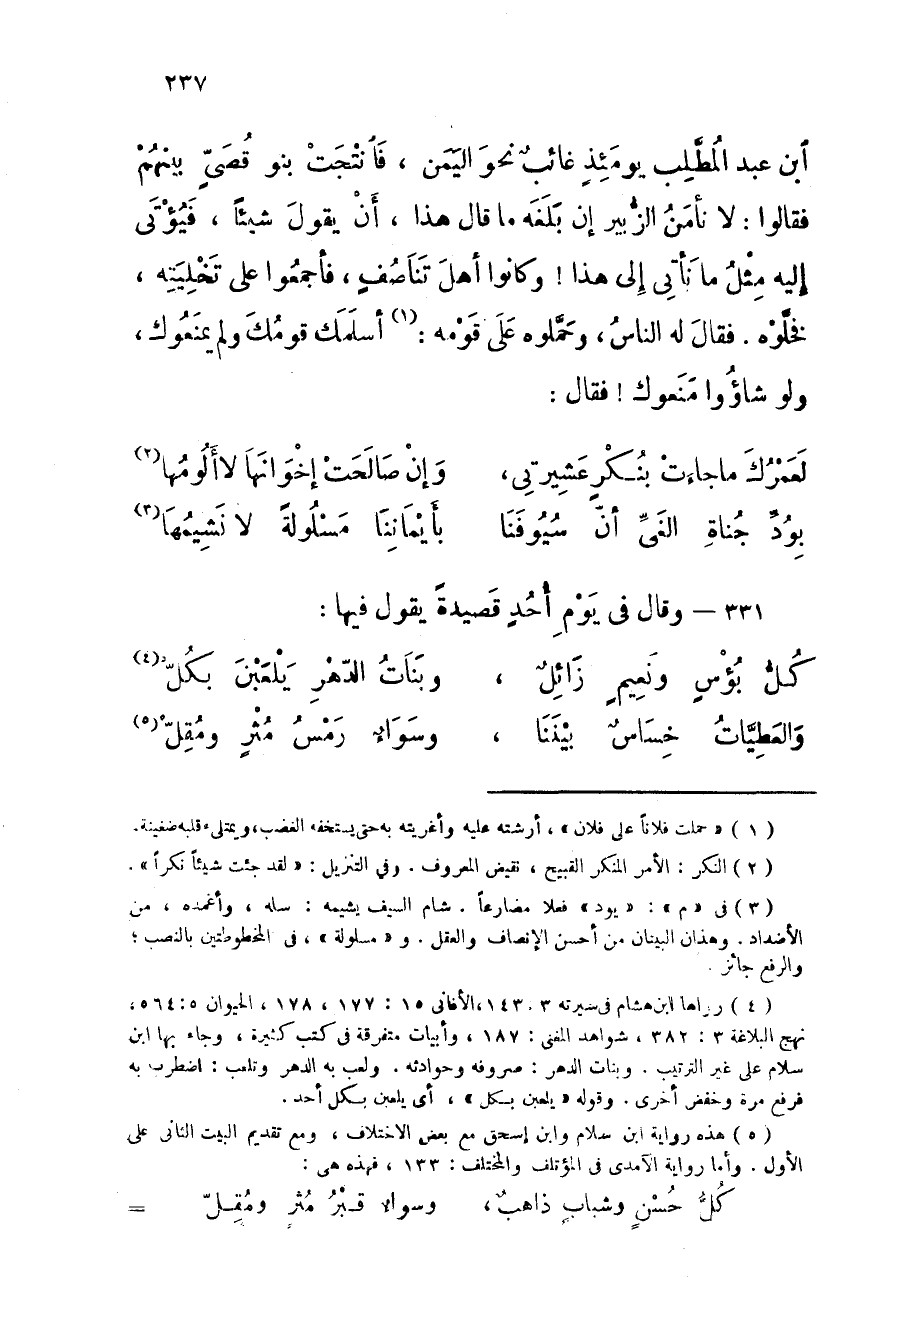 ٢٣٧
أبن عبد المُطَّلِب يومَئِذٍ غائبٌ نحوَ اليَمَن ، فَاُنْتَجَتْ بنو قُصَىٍّ بينهُمْ
فقالوا : لا نأمَنُ الزُّبير إن بَلَغَه ما قال هذا ، أَنْ يقولَ شيئاً ، فَيُؤْتَى
إليه مِثْلُ ما نَأْتِى إلى هذا ! وكانوا أهلَ تَنَاصُفٍ ، فأجمعُوا على تَخْلِيَتِه ،
فخلَّوْه . فقالَ له الناسُ ، وحَمَّلوه عَلَى قَوْمه :(١) أسلمَك قومُكَ ولم يمنَعُوك ،
ولو شاؤُوا مَنَعوك ! فقال :
لَعَمْرُكَ ماجاءتْ بنُكْرٍ عَشِيرتِى، وَإنْ صَالَحَتْ إخْوَانَهَا لا أَلُومُها(٢)
بِوُدِّ جُناةِ الغَىِّ أنّ سُيُوفَنَا بأَيْمَانِنَا مَسْلُولةً لا نَشِيمُهَا(٣)
٣٣١ – وقال فى يَوْمِ أُحُدٍ قَصيدةً يقول فيها :
كُلُّ بُؤْسٍ ونَعِيمٍ زَائِلٌ ، وبَنَاتُ الدّهْرِ يَلْعَبْنَ بكُلّ(٤)
وَالعَطِيَّاتُ خِسَاسٌ بيْنَنَا ، وسَوَاءٌ رَمْسُ مُثْرٍ ومُقِلّ(٥)
( ١ ) « حملت فلاناً على فلان » ، أرشته عليه وأغريته به حتى يستخفه الغضب، ويمتلىء قلبه ضغينة.
( ٢ ) النكر : الأمر المنكر القبيح ، نقيض المعروف . وفي التنزيل : « لقد جئت شيئاً نكراً » .
( ٣ ) فى « م » : « يود » فعلا مضارعاً . شام السيف يشيمه : سله ، وأغمده ، من
الأضداد . وهذان البيتان من أحسن الإنصاف والعقل . و « مسلولة » ، فى المخطوطتين بالنصب ؛
والرفع جائز .
( ٤ ) رواها ابن هشام فى سيرته ٣ : ١٤٣ ،الأغانى ١٥ : ١٧٧ ، ١٧٨ ، الحيوان ٥ : ٥٦٤،
نهج البلاغة ٣ : ٣٨٢ ، شواهد المغنى : ١٨٧ ، وأبيات متفرقة فى كتب كثيرة ، وجاء بها ابن
سلام على غير الترتيب . وبنات الدهر : صروفه وحوادثه . ولعب به الدهر وتلعب : اضطرب به
فرفع مرة وخفض أخرى . وقوله « يلعبن بكل » ، أى يلعبن بكل أحد .
( ٥ ) هذه رواية ابن سلام وابن إسحق مع بعض الاختلاف ، ومع تقديم البيت الثانى على
الأول . وأما رواية الآمدى فى المؤتلف والمختلف : ١٣٣ ، فهذه هى :
كُلُّ حُسْنٍ وشبابٍ ذاهبٌ ، وسواءٌ قبْرُ مُثْرٍ ومُقِلّ =